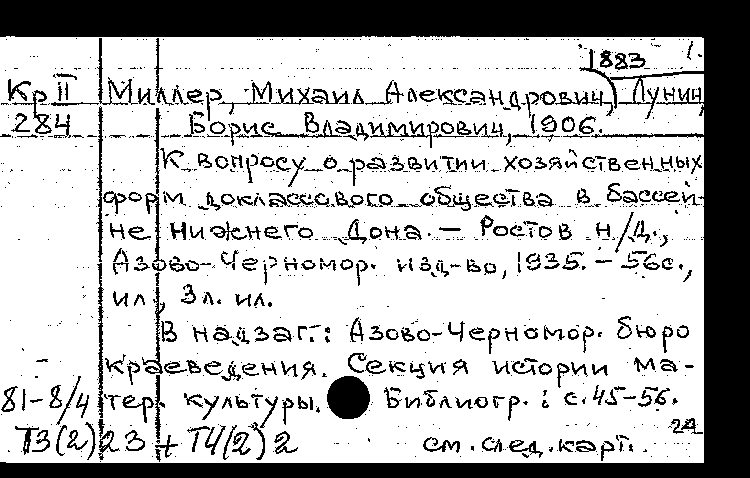 1883 1.
Кр II Миллер, Михаил Александрович, Лунин,
284 Борис Владимирович, 1906.
К вопросу о развитии хозяйственных
форм доклассового общества в бассей-
не Нижнего Дона. — Ростов н/Д.,
Азово-Черномор. изд-во, 1935. — 56с.,
ил., 3л. ил.
В надзаг.: Азово-Черномор. бюро
краеведения. Секция истории ма-
81-8/4 тер. культуры. Библиогр.: с.45-56.
24
Т3(2)23 + Т4(2)2 см. след. карт.